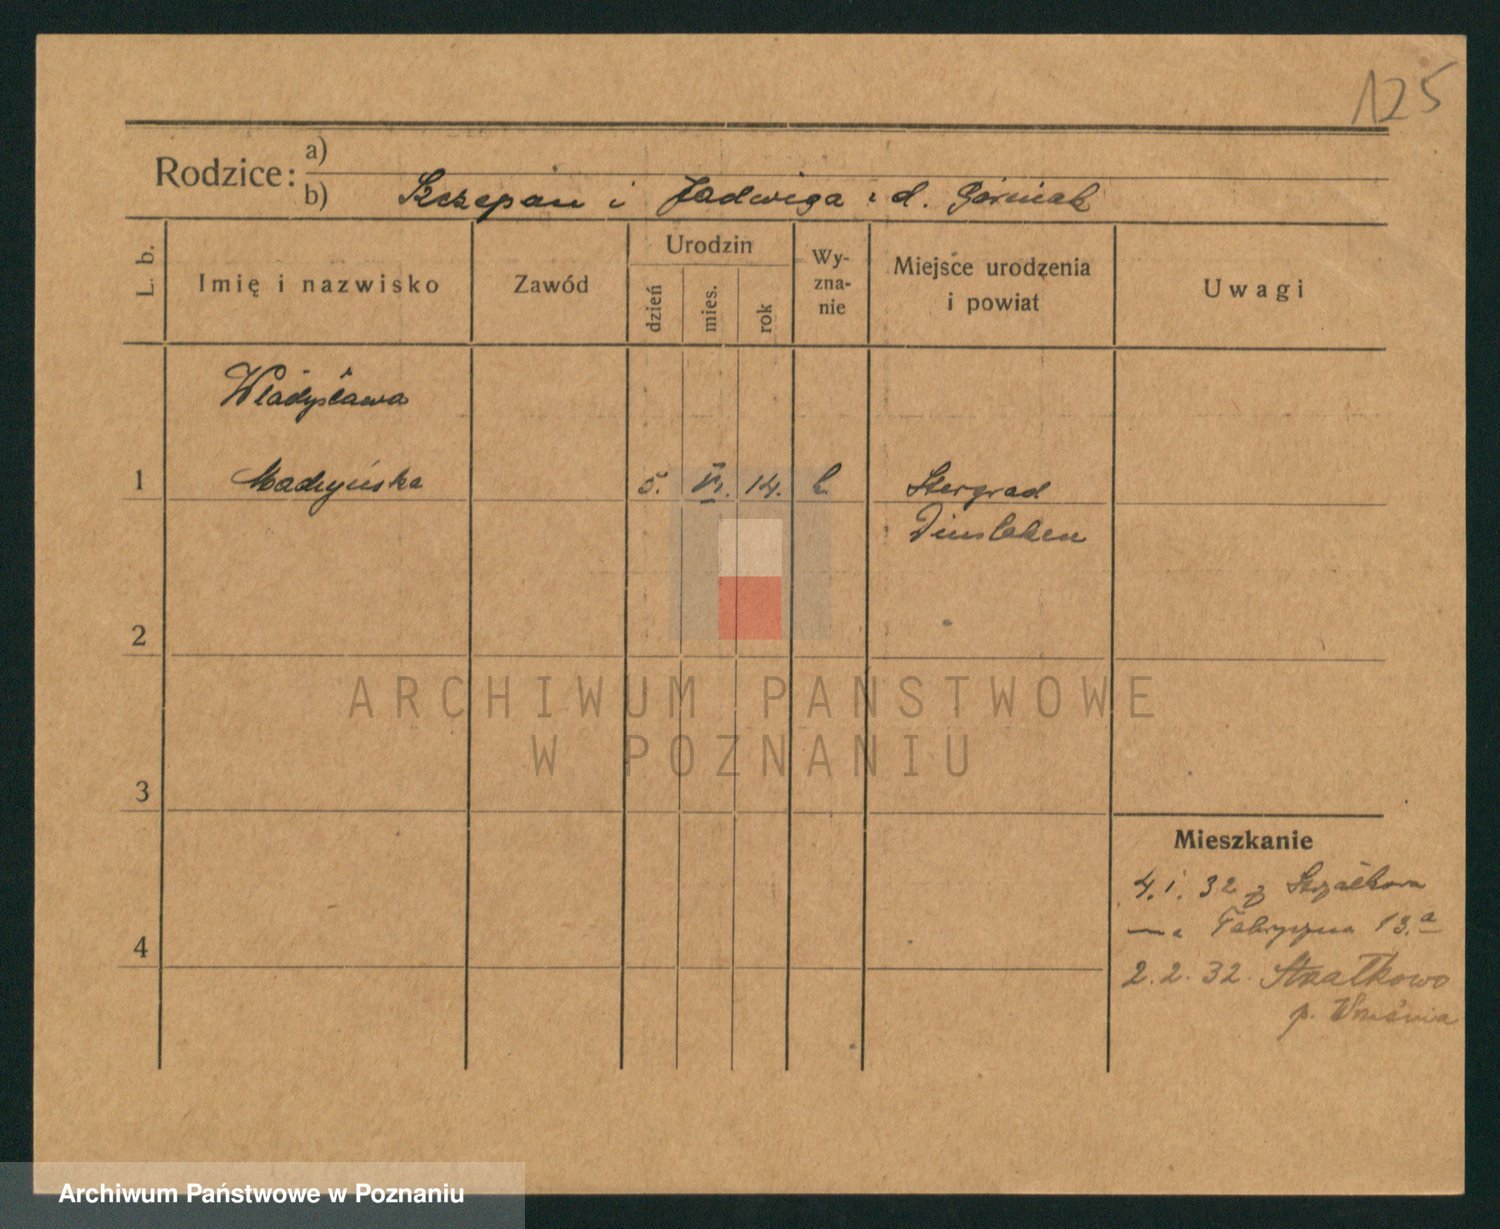 125
Rodzice: a)
b) Szczepan i Jadwiga z d. Górniak
L. b.
Imię i nazwisko
Zawód
Urodzin
dzień
mies.
rok
Wy-
zna-
nie
Miejsce urodzenia
i powiat
Uwagi
Władysława
1 Madzyńska 5. VI. 14. k. Stergrad
Dinslaken
2
ARCHIWUM PAŃSTWOWE
W POZNANIU
3
Mieszkanie
4.1.32 z Strzałkowa
Fabryczna 13.a
4
2.2.32. Strzałkowo
p. Września
Archiwum Państwowe w Poznaniu